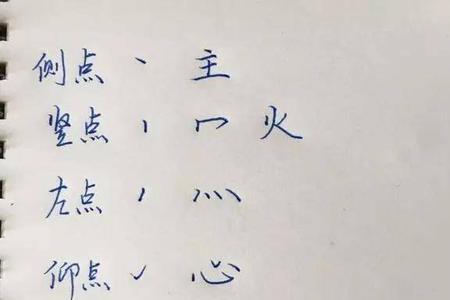 侧点 丶 主
竖点 丨 冖 火
左点 丿 灬
仰点 心